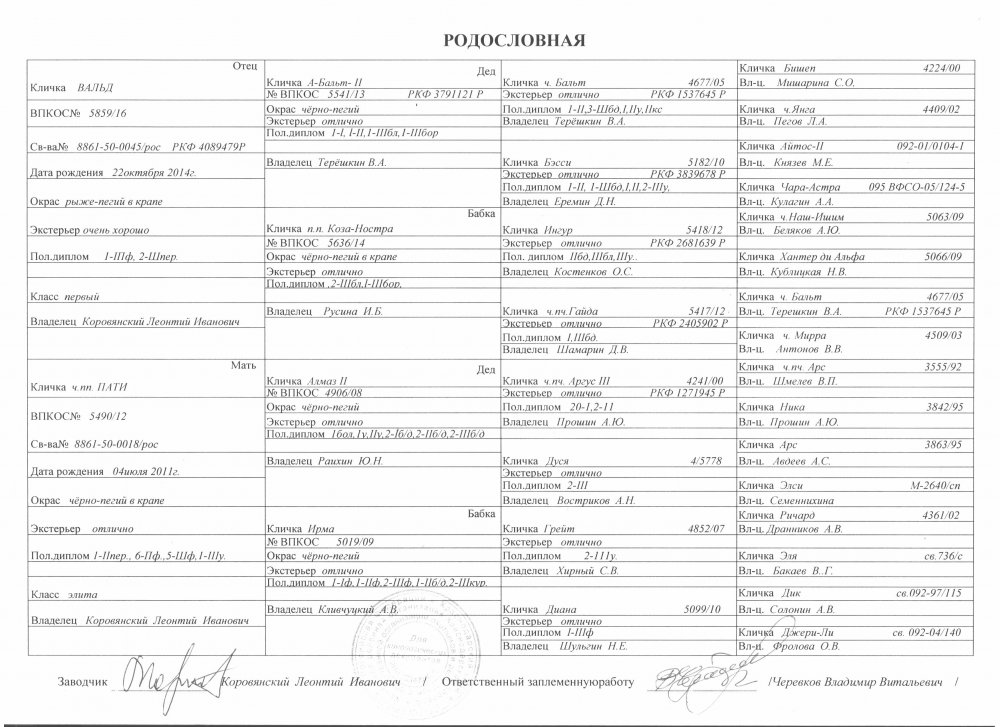 РОДОСЛОВНАЯ
Отец
Кличка ВАЛЬД
ВПКОС№ 5859/16
Св-ва№ 8861-50-0045/рос РКФ 4089479Р
Дата рождения 22октября 2014г.
Окрас рыже-пегий в крапе
Экстерьер очень хорошо
Пол.диплом 1-IIф, 2-IIIпер.
Класс первый
Владелец Коровянский Леонтий Иванович
Дед
Кличка А-Бальт- II
№ ВПКОС 5541/13 РКФ 3791121 Р
Окрас чёрно-пегий
Экстерьер отлично
Пол.диплом 1-I, I-II,1-IIIбл,1-IIIбор
Владелец Терёшкин В.А.
Бабка
Кличка п.п. Коза-Ностра
№ ВПКОС 5636/14
Окрас чёрно-пегий в крапе
Экстерьер отлично
Пол.диплом ,2-IIIбл,I-IIIбор,
Владелец Русина И.Б.
Кличка ч. Бальт 4677/05
Экстерьер отлично РКФ 1537645 Р
Пол.диплом 1-II,3-IIIбд,I,IIу,IIкс
Владелец Терёшкин В.А.
Кличка Бэсси 5182/10
Экстерьер отлично РКФ 3839678 Р
Пол.диплом 1-II, 1-IIIбд,I,II,2-IIIу,
Владелец Еремин Д.Н.
Кличка Ингур 5418/12
Экстерьер отлично РКФ 2681639 Р
Пол. диплом IIбд,IIIбл,IIIу..
Владелец Костенков О.С.
Кличка ч.пч.Гайда 5417/12
Экстерьер отлично РКФ 2405902 Р
Пол.диплом I,IIIбд.
Владелец Шамарин Д.В.
Кличка Бишеп 4224/00
Вл-ц. Мишарина С.О.
Кличка ч.Янга 4409/02
Вл-ц. Пегов Л.А.
Кличка Айтос-II 092-01/0104-1
Вл-ц. Князев М.Е.
Кличка Чара-Астра 095 ВФСО-05/124-5
Вл-ц. Кулагин А.А.
Кличка ч.Наш-Ишим 5063/09
Вл-ц. Беляков А.Ю.
Кличка Хантер ди Альфа 5066/09
Вл-ц. Кублицкая Н.В.
Кличка ч. Бальт 4677/05
Вл-ц. Терешкин В.А. РКФ 1537645 Р
Кличка ч. Мирра 4509/03
Вл-ц. Антонов В.В.
Мать
Кличка ч.пп. ПАТИ
ВПКОС№ 5490/12
Св-ва№ 8861-50-0018/рос
Дата рождения 04июля 2011г.
Окрас чёрно-пегий в крапе
Экстерьер отлично
Пол.диплом 1-IIпер., 6-IIф.,5-IIIф,1-IIIу.
Класс элита
Владелец Коровянский Леонтий Иванович
Дед
Кличка Алмаз II
№ ВПКОС 4906/08
Окрас чёрно-пегий
Экстерьер отлично
Пол.диплом 1бол,1у,IIу,2-Iб/д,2-IIб/д,2-IIIб/д
Владелец Раихин Ю.Н.
Бабка
Кличка Ирма
№ ВПКОС 5019/09
Окрас чёрно-пегий
Экстерьер отлично
Пол.диплом 1-Iф,1-IIф,2-IIIф,1-IIб/д,2-IIIкур.
Владелец Кливчуцкий А.В.
Кличка ч.пч. Аргус III 4241/00
Экстерьер отлично РКФ 1271945 Р
Пол.диплом 20-1,2-11
Владелец Прошин А.Ю.
Кличка Дуся 4/5778
Экстерьер отлично
Пол.диплом 2-III
Владелец Востриков А.Н.
Кличка Грейт 4852/07
Экстерьер отлично
Пол.диплом 2-111у.
Владелец Хирный С.В.
Кличка Диана 5099/10
Экстерьер отлично
Пол.диплом I-IIIф
Владелец Шульгин Н.Е.
Кличка ч.пч. Арс 3555/92
Вл-ц. Шмелев В.П.
Кличка Ника 3842/95
Вл-ц. Прошин А.Ю.
Кличка Арс 3863/95
Вл-ц. Авдеев А.С.
Кличка Элси М-2640/сп
Вл-ц. Семеннихина
Кличка Ричард 4361/02
Вл-ц. Дранников А.В.
Кличка Эля св.736/с
Вл-ц. Бакаев В..Г.
Кличка Дик св.092-97/115
Вл-ц. Солонин А.В.
Кличка Джери-Ли св. 092-04/140
Вл-ц. Фролова О.В.
Заводчик Коровянский Леонтий Иванович / Ответственный заплеменнуюработу /Черевков Владимир Витальевич /